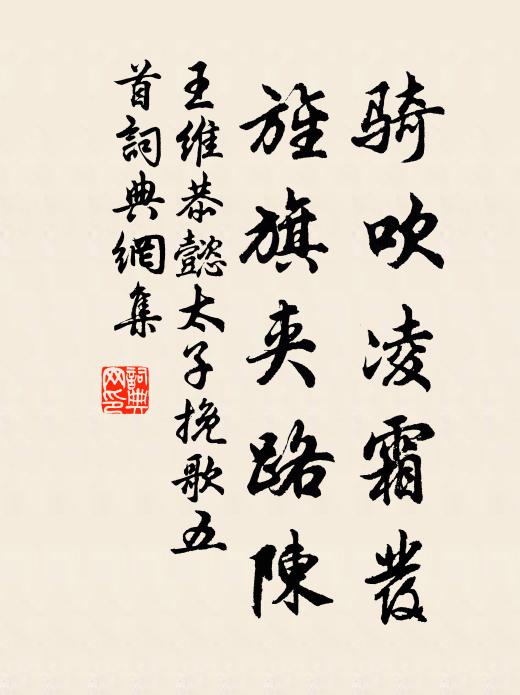 騎吹凌霜發
旌旗夾路陳
王維恭懿太子挽歌五
首詞典網集
詞典
网印